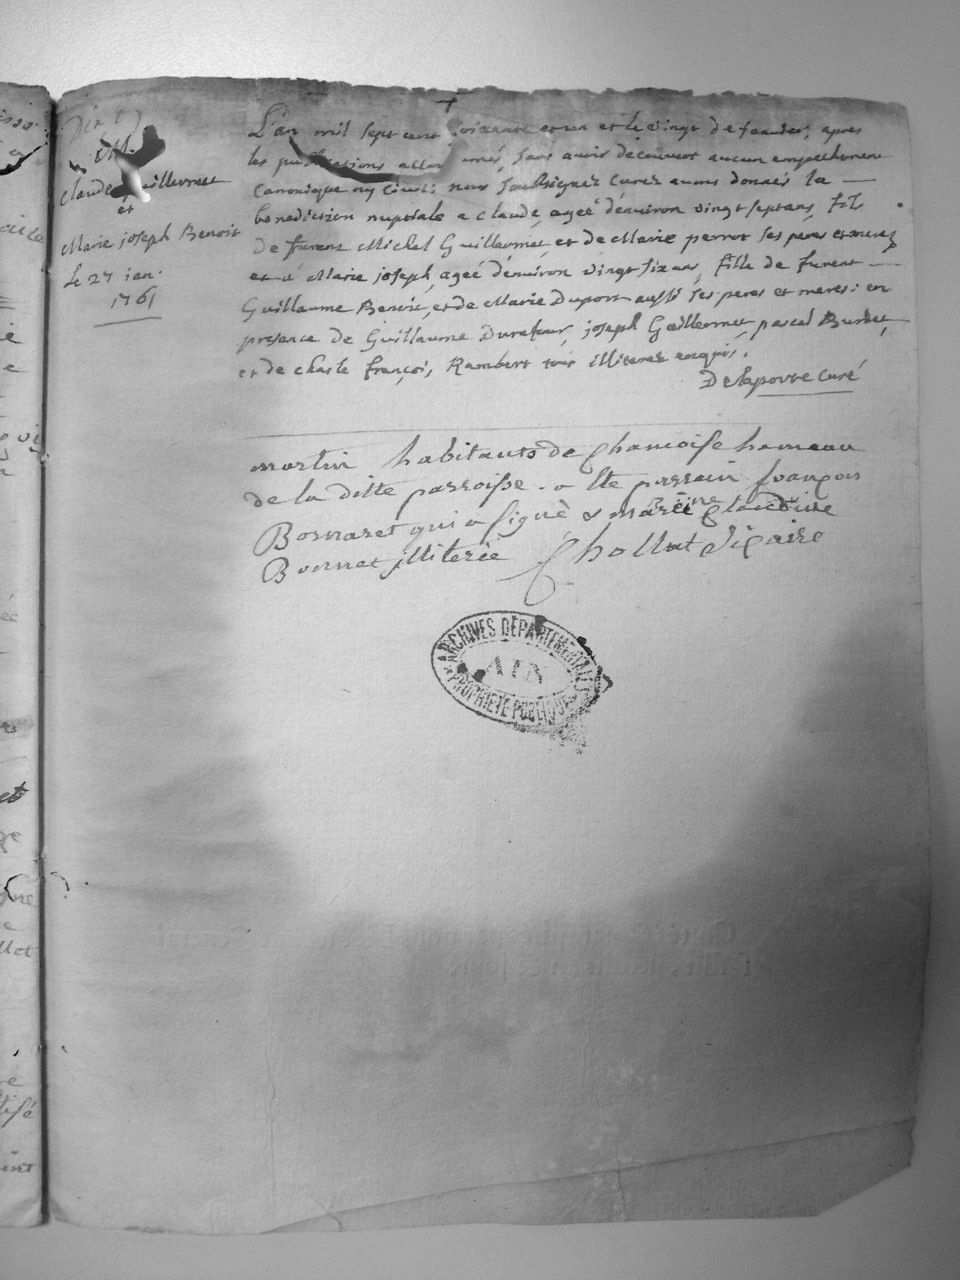 Claude Guillermet
et
Marie joseph Benoit
le 27 ian.
1761
L'an mil sept cent soixante et un et le vingt de feauder, apres
les publications sans avoir decouvert aucun empechement
Canonique ny Civil: nous soussignez Curez avons donnés la
benediction nuptiale a Claude, ageé denviron vingt septans, fils
de furent Michel Guillermet, et de Marie perrot ses peres et meres
et a Marie joseph ageé denviron vingt six ans, fille de furent
Guillaume Benoit, et de Marie Dupont aussi ses peres et meres: en
presence de Guillaume Durafour, joseph Guillermet, pascal Burdet,
et de charle françois, Rambert tous illiterez enquis.
Delaporte Curé
martin habitants de Chamoise hameau
de la ditte parroisse. a ete parrain françois
Bornaret qui a signé & mareine Claudine
Bornet illiterée Chollut Vicaire
ARCHIVES DEPARTEMENTALES
AIN
PROPRIETE PUBLIQUE